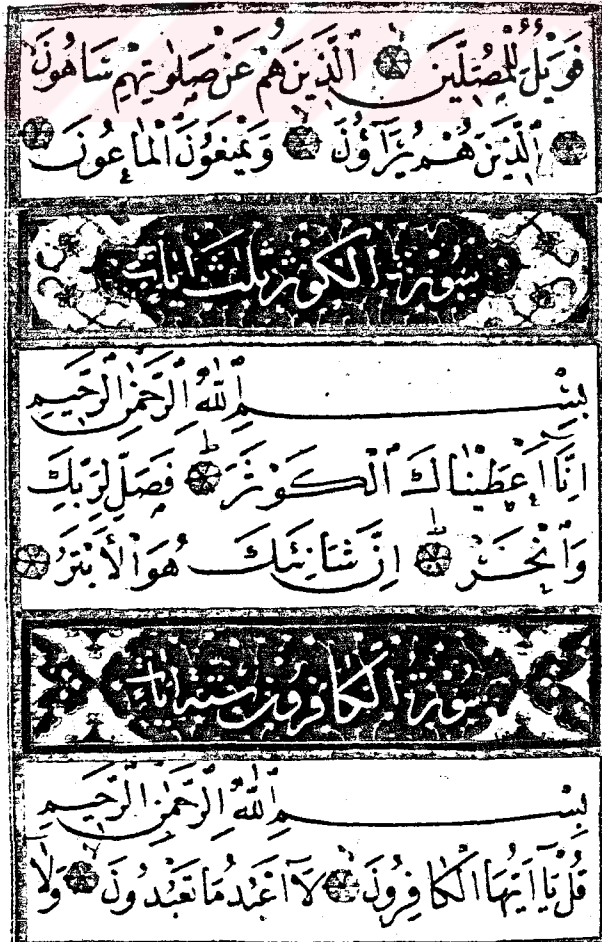 فَوَيْلٌ لِلْمُصَلِّينَ ۝ اَلَّذِينَ هُمْ عَنْ صَلٰوتِهِمْ سَاهُونَ
۝ اَلَّذِينَ هُمْ يُرَآؤُنَ ۝ وَيَمْنَعُونَ الْمَاعُونَ ۝
سورة الكوثر ثلث ايات
بِسْمِ اللّٰهِ الرَّحْمٰنِ الرَّحِيمِ
اِنَّا اَعْطَيْنَاكَ الْكَوْثَرَ ۝ فَصَلِّ لِرَبِّكَ
وَانْحَرْ ۝ اِنَّ شَانِئَكَ هُوَ الْاَبْتَرُ ۝
سورة الكافرون ستة ايات
بِسْمِ اللّٰهِ الرَّحْمٰنِ الرَّحِيمِ
قُلْ يَآ اَيُّهَا الْكَافِرُونَ ۝ لَآ اَعْبُدُ مَا تَعْبُدُونَ ۝ وَلَآ